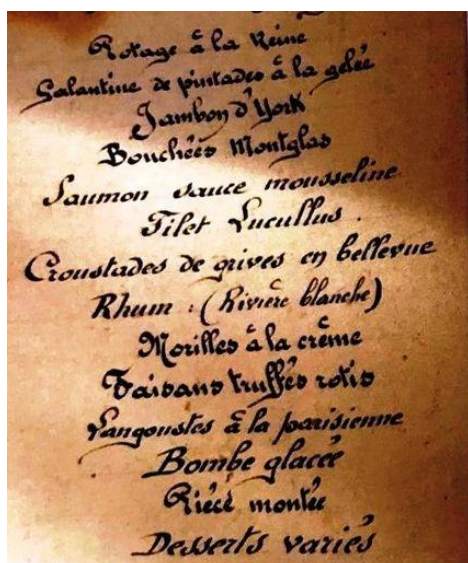 Potage à la Reine
Galantine de pintades à la gelée
Jambon d'York
Bouchées Montglas
Saumon sauce mousseline
Filet Lucullus.
Croustades de grives en bellevue
Rhum : (Rivière blanche)
Morilles à la crême
Faisans truffés rotis
Langoustes à la parisienne
Bombe glacée
Pièce montée
Desserts variés